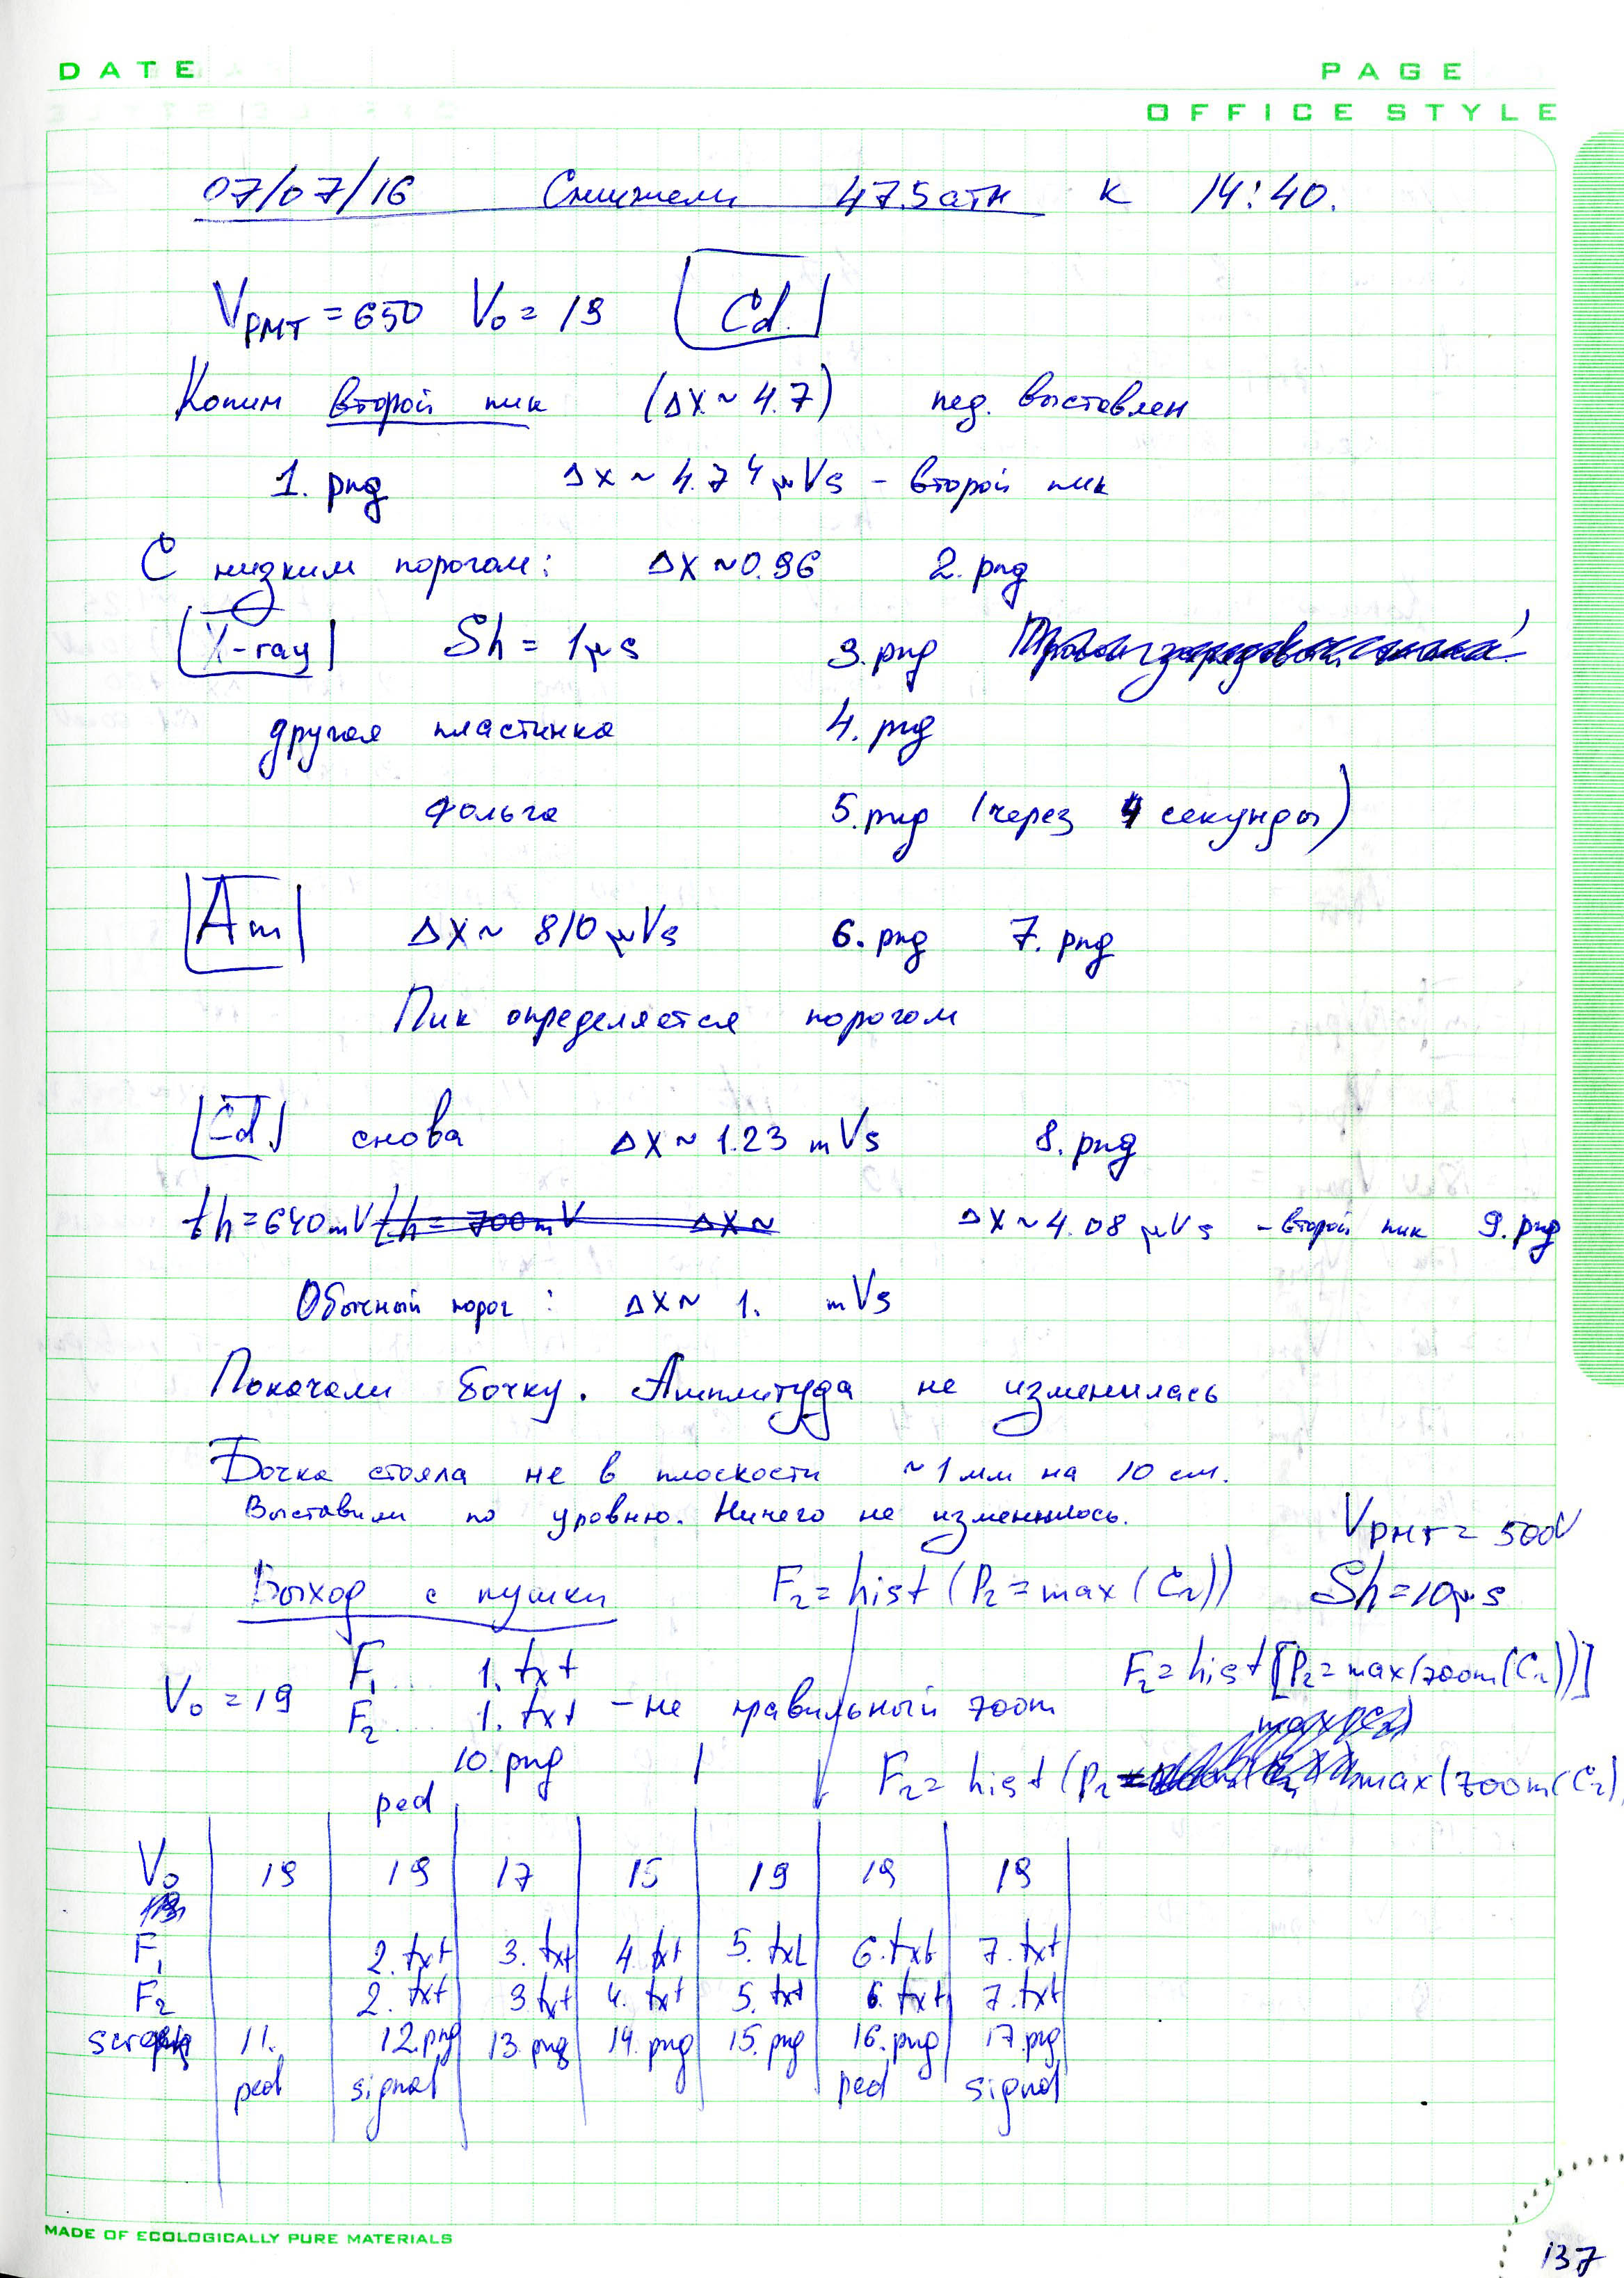 DATE
PAGE
OFFICE STYLE
07/07/16 Снижали 47.5 атн к 14:40.
V PMT = 650 V₀ = 19 Cd.
Копим второй пик (Δx ~ 4.7) пед. выставлен
1. png Δx ~ 4.74 μVs - второй пик
С низким порогом: Δx ~ 0.96 2. png
X-ray Sh = 1μs 3. png
другая пластинка 4. png
фольга 5. png (через 4 секунды)
Am Δx ~ 810 μVs 6. png 7. png
Пик определяется порогом
Cd. снова Δx ~ 1.23 mVs 8. png
th = 640 mV th = 700 mV Δx ~ Δx ~ 4.08 μVs - второй пик 9. png
Обычный порог: Δx ~ 1. mVs
Покачали бочку. Амплитуда не изменилась
Бочка стояла не в плоскости ~ 1 мм на 10 см.
Выставили по уровню. Ничего не изменилось.
V PMT = 500V
Выход с пушки F₂ = hist (P₂ = max (C₂)) Sh = 10μs
F₁ ... 1. txt F₂ = hist [P₂ = max(zoom(C₂))]
V₀ = 19 F₂ ... 1. txt - не правильный zoom
10. png F₂ = hist (P₂ max(zoom(C₂)
ped
V₀ 19 19 17 15 19 19 19
F₁ 2. txt 3. txt 4. txt 5. txt 6. txt 7. txt
F₂ 2. txt 3 txt 4. txt 5. txt 6. txt 7. txt
11. 12. png 13. png 14. png 15. png 16. png 17. png
ped signal ped signal
MADE OF ECOLOGICALLY PURE MATERIALS
137